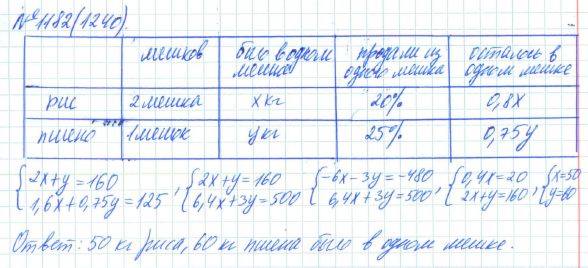 №1182(1240).
мешков | было в одном мешке | продали из одного мешка | осталось в одном мешке
рис | 2 мешка | x кг | 20% | 0,8x
пшено | 1 мешок | y кг | 25% | 0,75y
{2x+y=160, {2x+y=160 {-6x-3y=-480 {0,4x=20 {x=50
1,6x+0,75y=125, 6,4x+3y=500 6,4x+3y=500, 2x+y=160, y=60
Ответ: 50 кг риса, 60 кг пшена было в одном мешке.